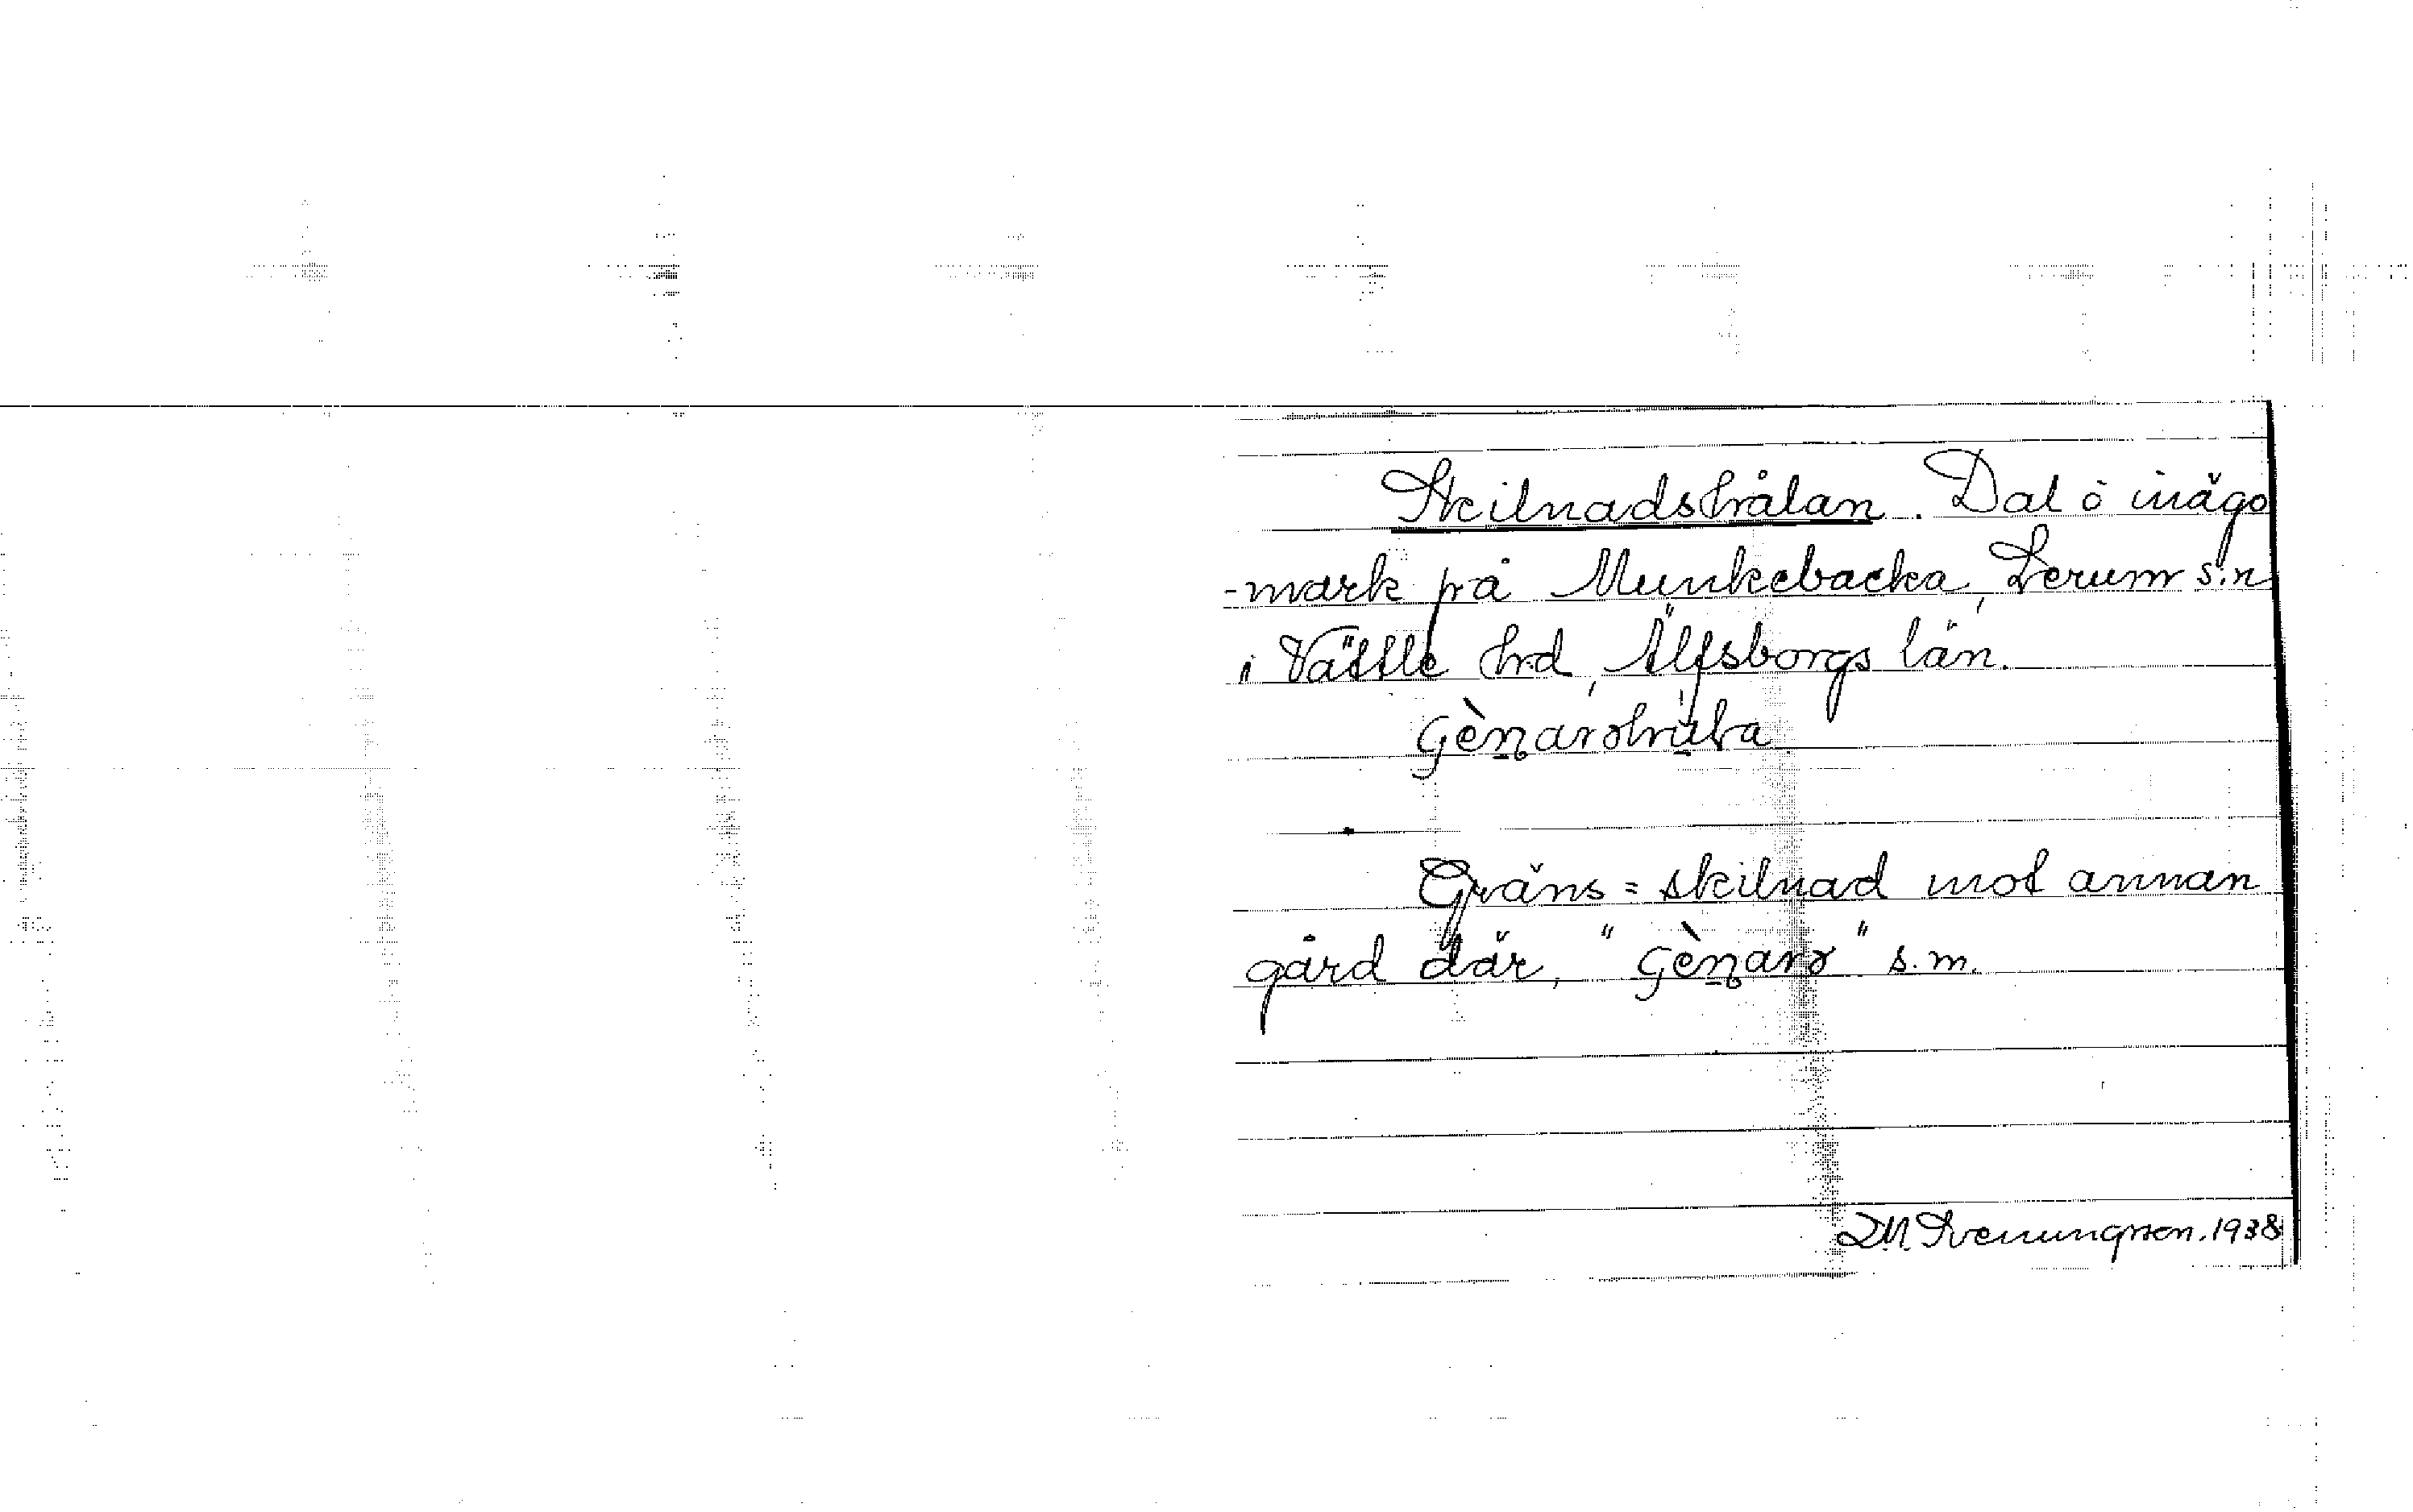 Skilnadshålan. Dal å inägo
-mark på Munkebacka, Lerum s:n
i Vättle hrd, Älfsborgs län.
Gräns = skilnad mot annan
gård där, " " s.m.
D.M. Svenungsson. 1938